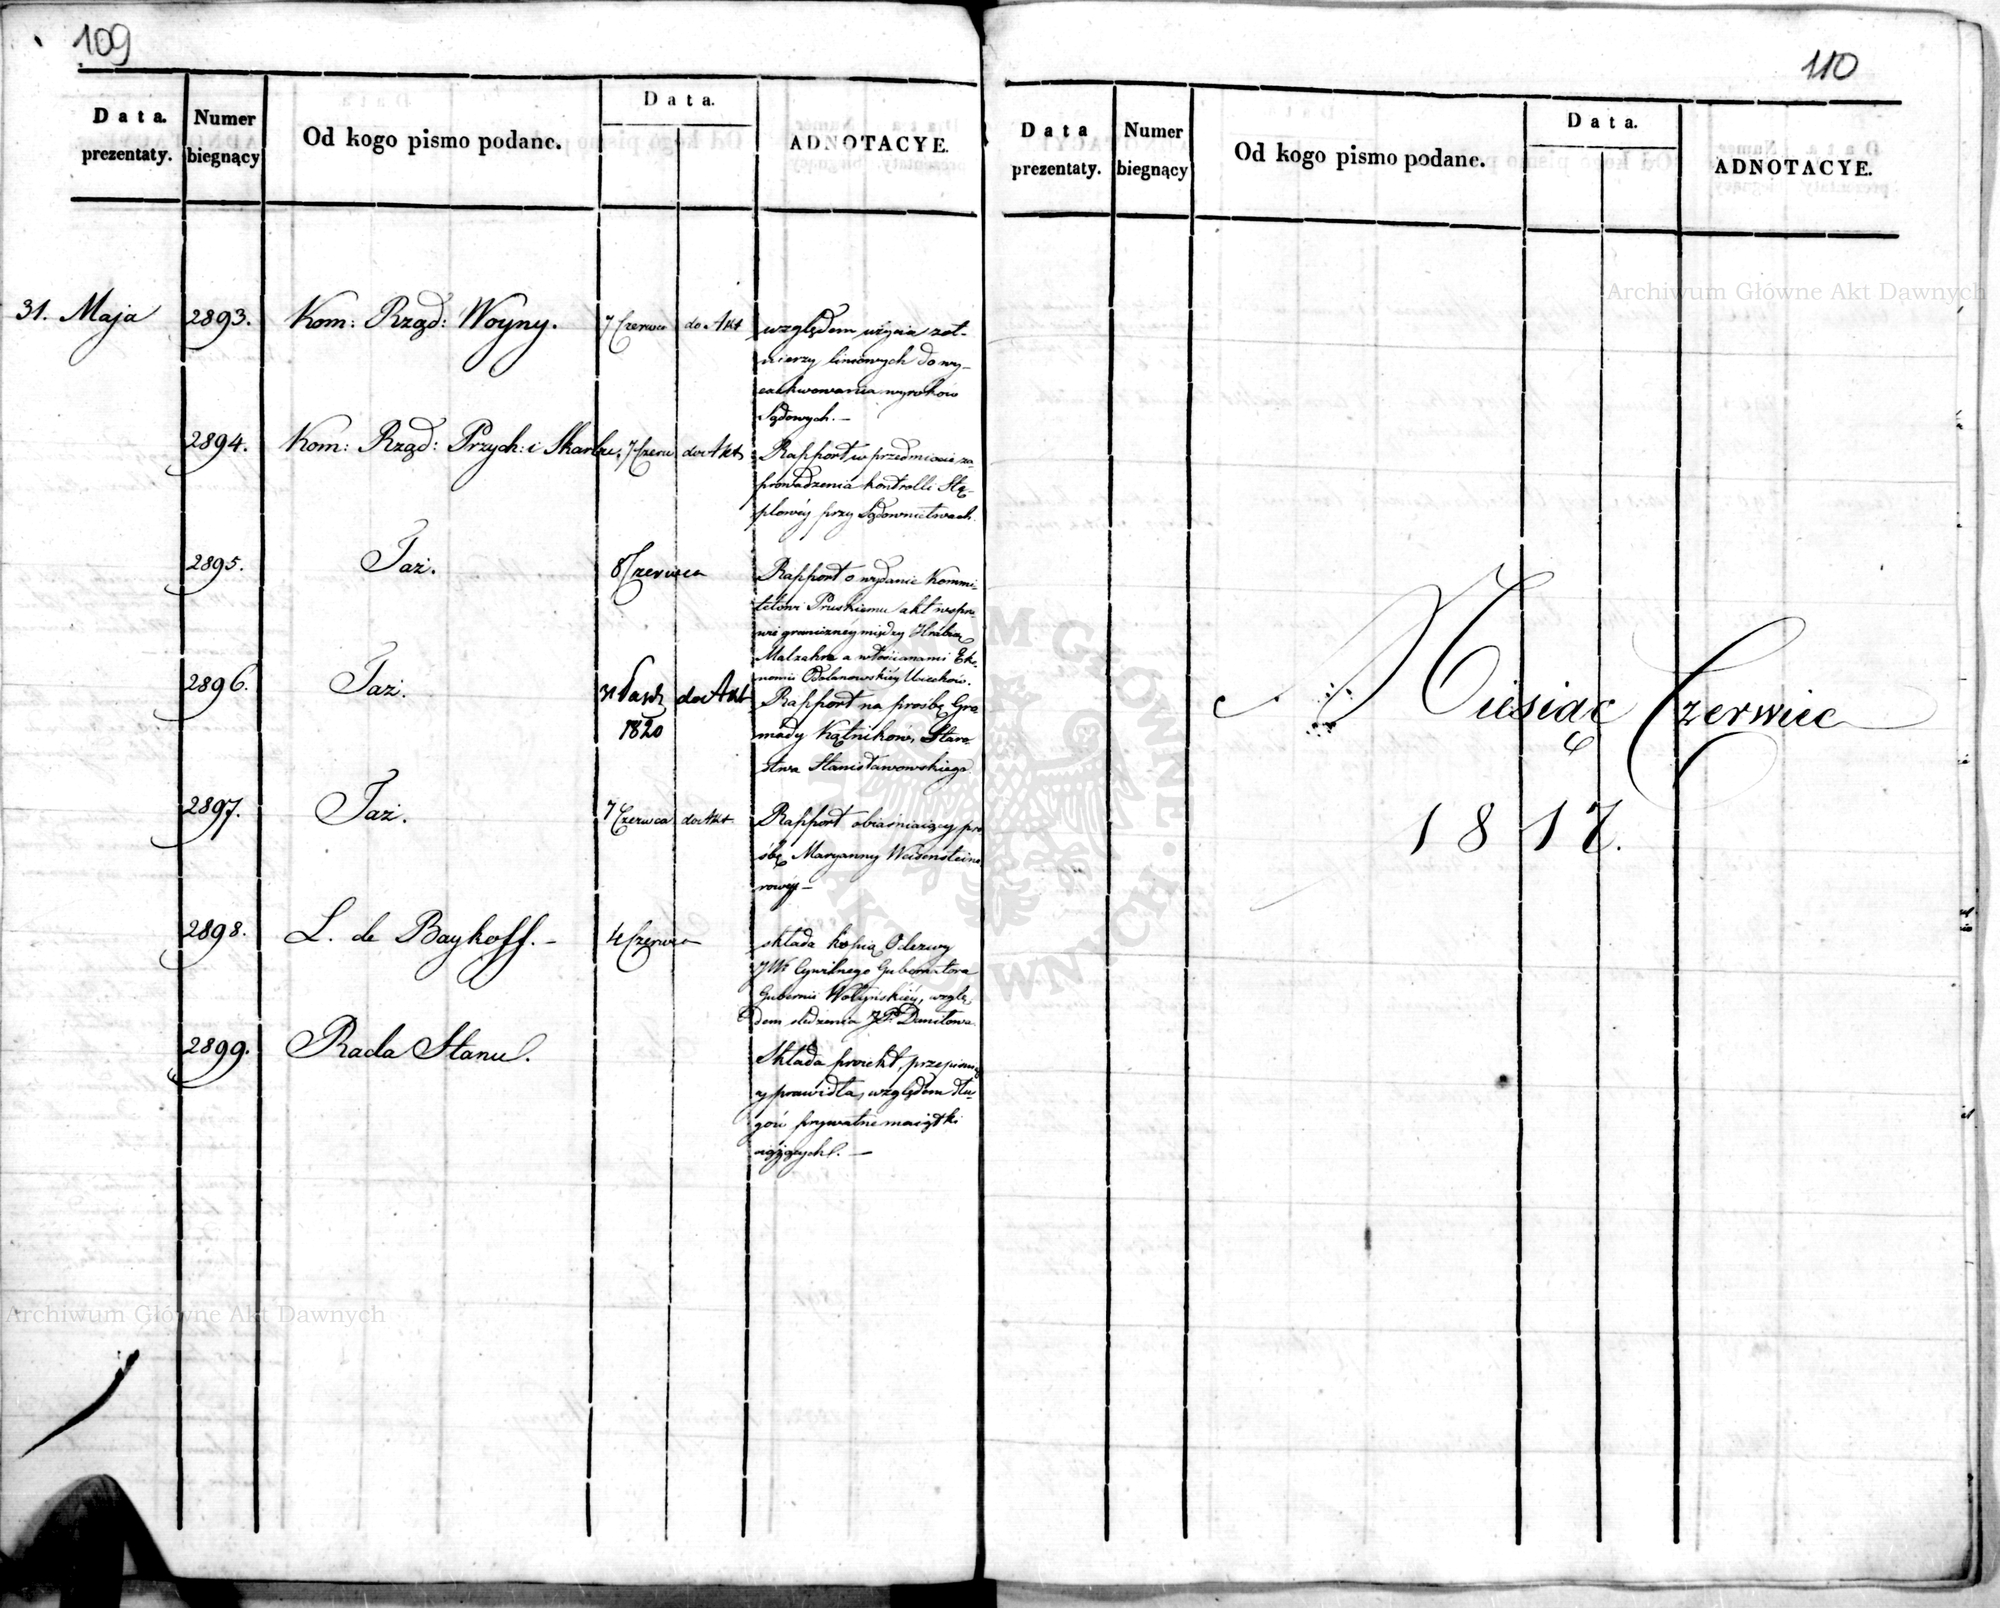 109
Data. prezentaty.
Numer biegnący
Od kogo pismo podane.
Data.
ADNOTACYE.
31. Maja 2893. Kom: Rząd: Woyny. 7 Czerwca do Akt
względem użycia żoł-
nierzy liniowych do wy-
exekwowania wyroków
Sądowych. —
2894. Kom: Rząd: Przych: i Skarbu. 7 Czerw do Akt
Rapport w przedmiocie za-
prowadzenia kontrolli Stę-
plowéy przy Sądownictwach.
2895. Taż. 8 Czerwca
Rapport o wydanie Kommi-
tetowi Pruskiemu akt w spra
wie graniczney między Hrabią
Malzahn a włościanami Eko-
nomii Odolanowskiéy
2896. Taż. 31 Paźdz 1820 do Akt
Rapport na prośbę Gro
mady Kątników, Staro-
stwa Stanisławowskiego
2897. Taż. 7 Czerwca do Akt
Rapport obiaśniaiący pro
śbę Maryanny Weisensteine-
rowéy —
2898. L. de Baykoff. — 4 Czerwca
składa kopią Odezwy
JW Cywilnego Gubernatora
Gubernii Wołyńskiéy, wzglę-
dem śledzenia JP. Daniłowa
2899. Rada Stanu.
Składa proiekt, przepisuią
cy prawidła, względem dłu-
gów prywatne maiątki
ciążących. —
110
Data prezentaty.
Numer biegnący
Od kogo pismo podane.
Data.
ADNOTACYE.
Miesiąc Czerwiec
1817.
Archiwum Główne Akt Dawnych
Archiwum Główne Akt Dawnych